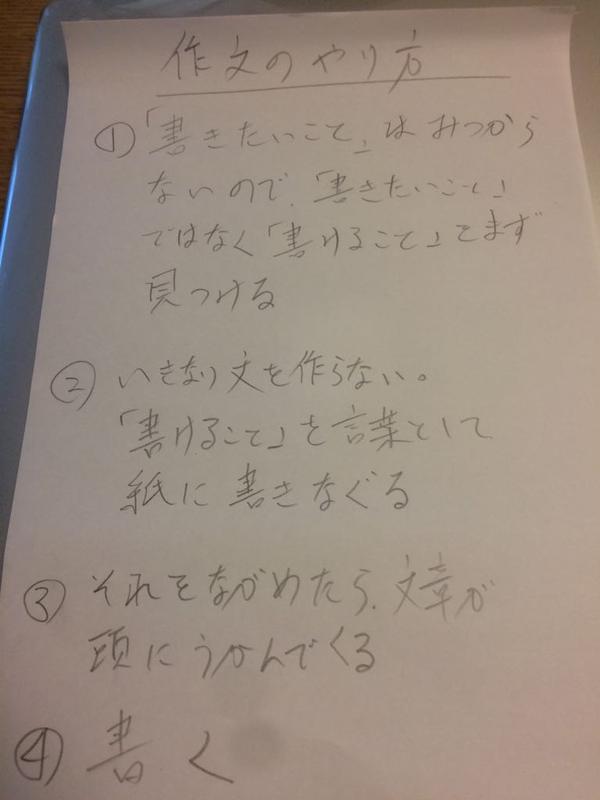 作文のやり方
①「書きたいこと」はみつから
ないので、「書きたいこと」
ではなく「書けること」をまず
見つける
②いきなり文を作らない。
「書けること」を言葉として
紙に書きなぐる
③それをながめたら、文章が
頭にうかんでくる
④書く